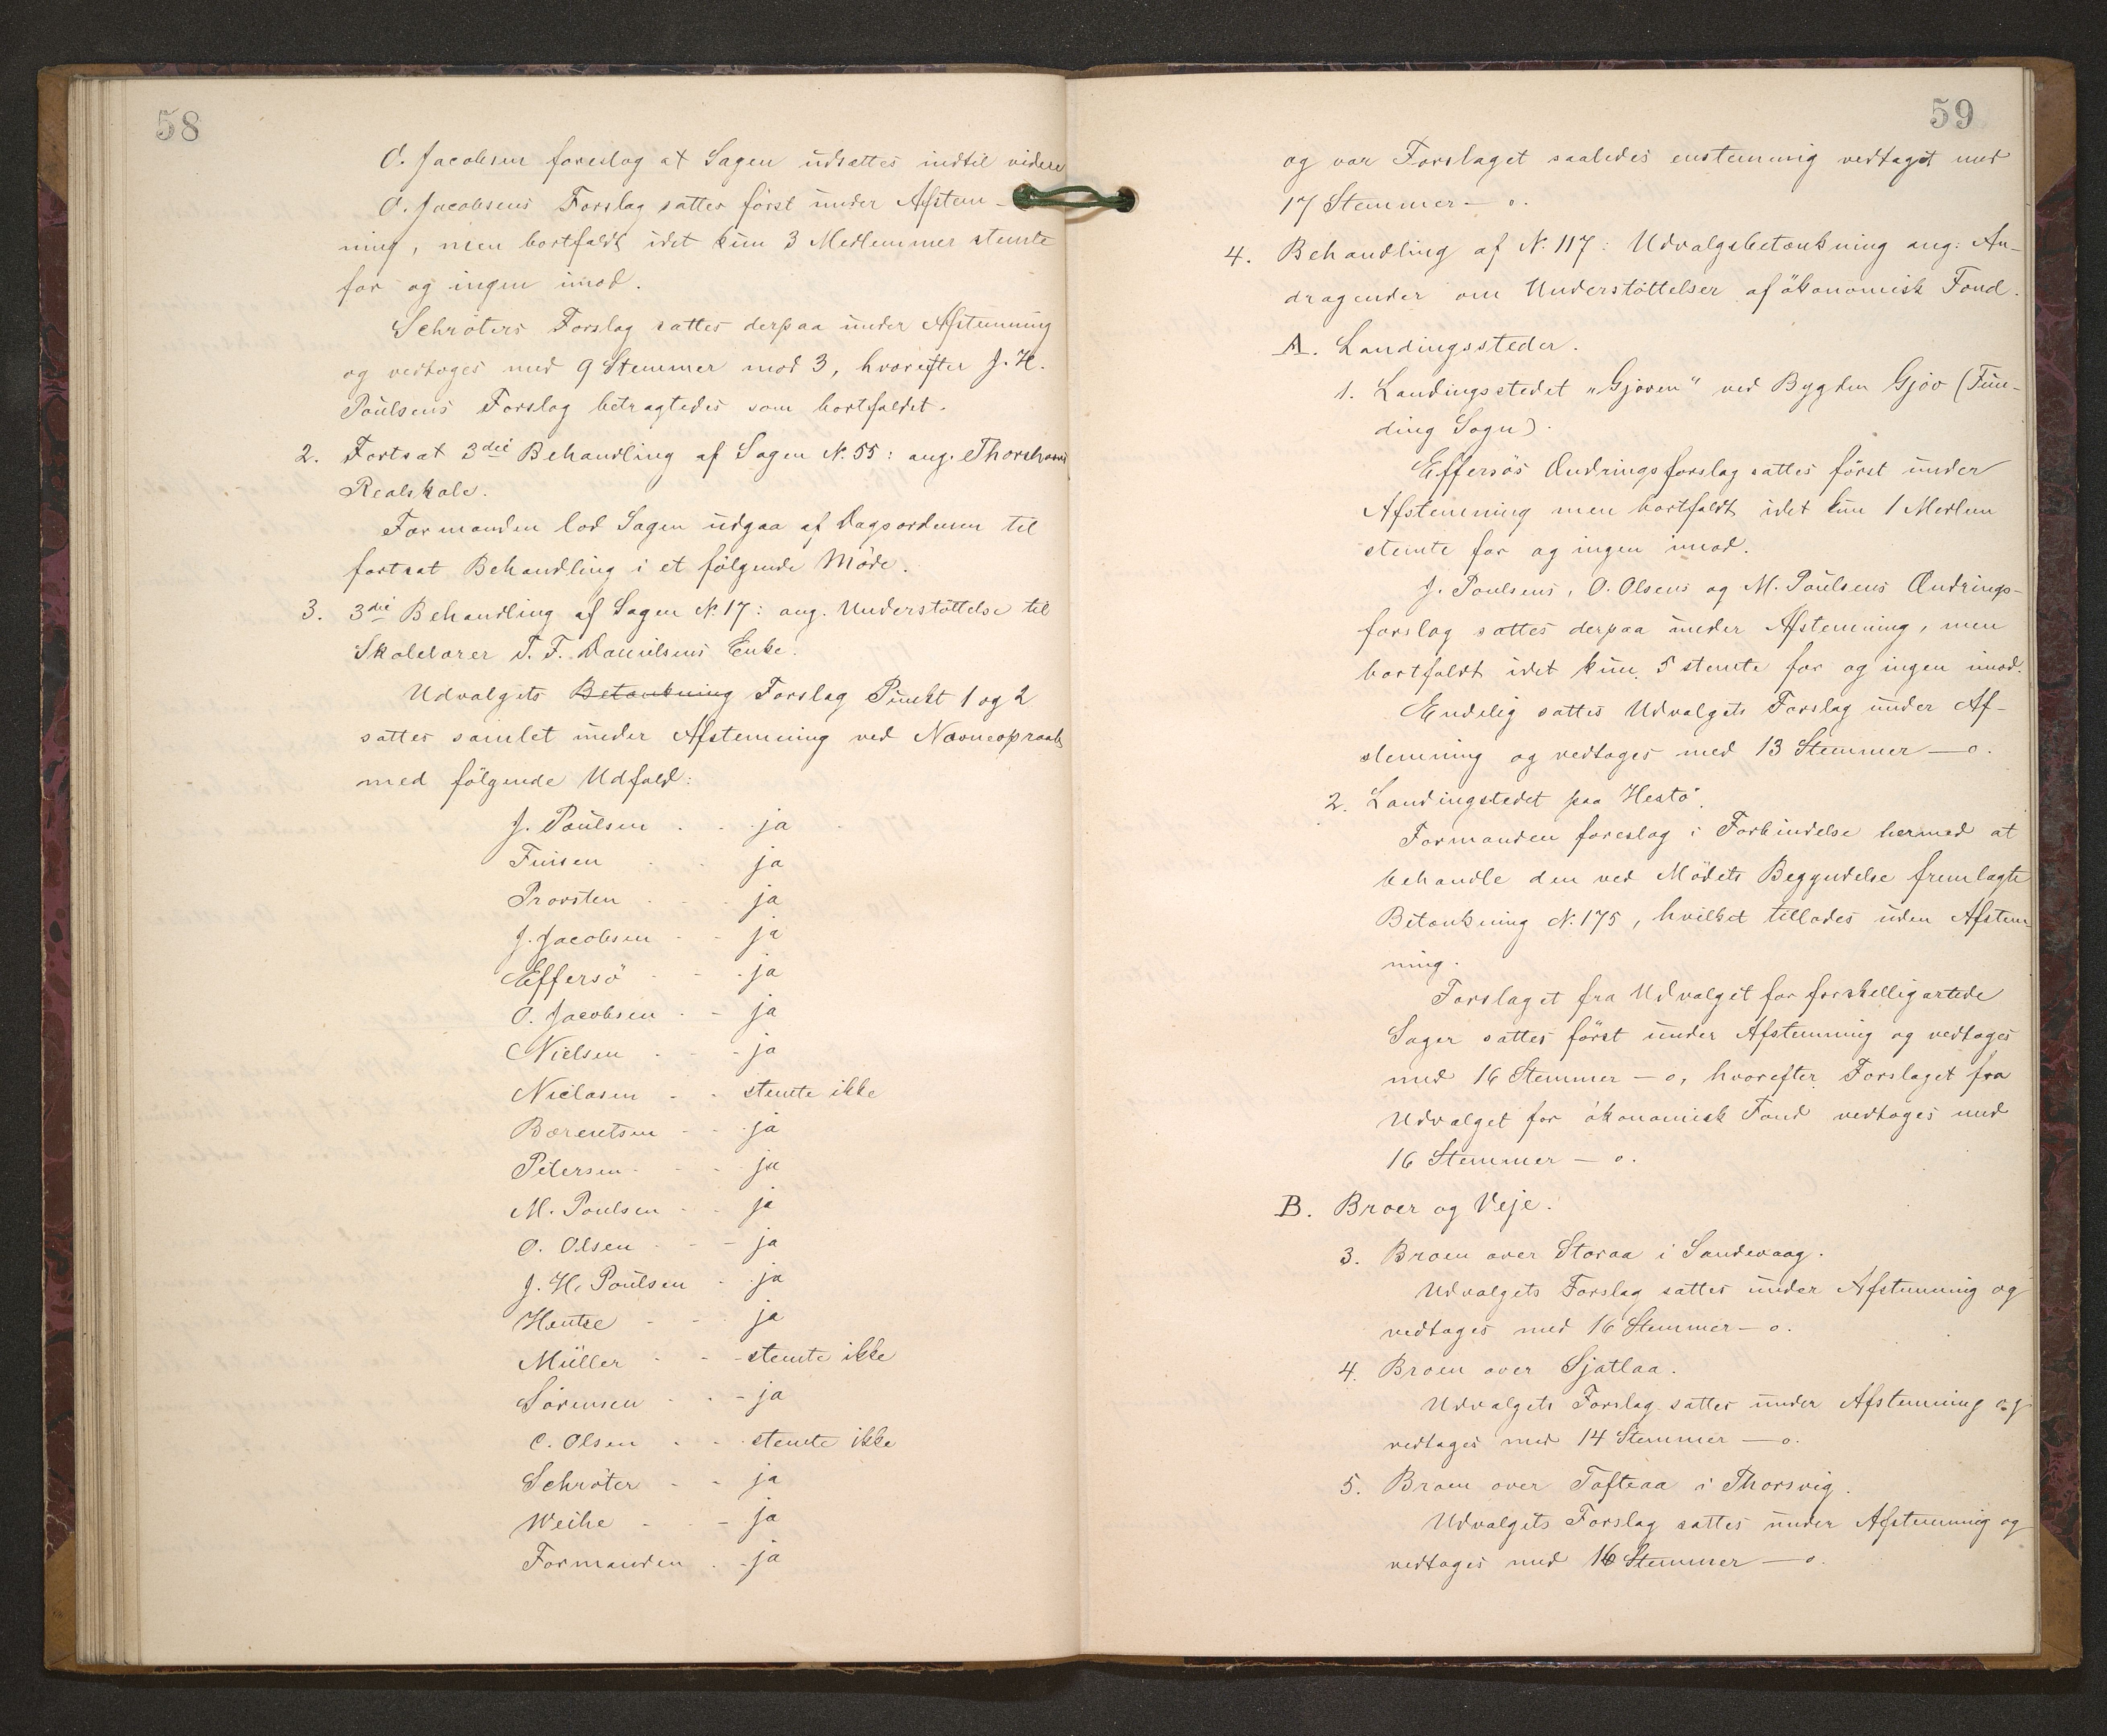 58
O. Jacobsen foreslog at Sagen udsattes indtil videre
O. Jacobsens Forslag sattes först under Afstem-
ning, men bortfaldt idet kun 3 Medlemmer stemte
for og ingen imod.
Schröters Forslag sattes derpaa under Afstemning
og vedtoges med 9 Stemmer mod 3, hvorefter J. H.
Poulsens Forslag betragtedes som bortfaldet.
2. Fortsat 3die Behandling af Sagen N. 55: ang. Thorshavns
Realskole.
Formanden lod Sagen udgaa af Dagsordenen til
fortsat Behandling i et fölgende Möde.
3. 3die Behandling af Sagen N. 17: ang. Understöttelse til
Skolelærer T. F. Danielsens Enke.
Udvalgets Betænkning Forslag Punkt 1 og 2
sattes samlet under Afstemning ved Navneopraab
med fölgende Udfald:
J. Poulsen - - ja
Finsen - - ja
Provsten - - ja
J. Jacobsen - - ja
Effersö - - ja
O. Jacobsen - - ja
Nielsen - - ja
Niclasen - - stemte ikke
Bærentsen - - ja
Petersen - - ja
M. Poulsen - - ja
O. Olsen - - ja
J. H. Poulsen - ja
Hentze - - ja
Müller - - stemte ikke
Sörensen - - ja
C. Olsen - - stemte ikke
Schröter - - ja
Weihe - - ja
Formanden - ja
59
og var Forslaget saaledes enstemmig vedtaget med
17 Stemmer — o.
4. Behandling af N. 117: Udvalgsbetænkning ang: An-
dragender om Understöttelser af ökonomisk Fond.
A. Landingssteder.
1. Landingsstedet „Gjoven" ved Bygden Gjov (Fun-
ding Sogn).
Effersös Ændringsforslag sattes först under
Afstemning men bortfaldt idet kun 1 Medlem
stemte for og ingen imod.
J. Poulsens, O. Olsens og M. Poulsens Ændrings-
forslag sattes derpaa under Afstemning, men
bortfaldt idet kun 5 stemte for og ingen imod.
Endelig sattes Udvalgets Forslag under Af-
stemning og vedtoges med 13 Stemmer — o.
2. Landingstedet paa Hestö.
Formanden foreslog i Forbindelse hermed at
behandle den ved Mödets Begyndelse fremlagte
Betænkning N. 175, hvilket tillodes uden Afstem
ning.
Forslaget fra Udvalget for forskelligartede
Sager sattes först under Afstemning og vedtoges
med 16 Stemmer — o, hvorefter Forslaget fra
Udvalget for ökonomisk Fond vedtoges med
16 Stemmer — o.
B. Broer og Veje.
3. Broen over Storaa i Sandevaag.
Udvalgets Forslag sattes under Afstemning og
vedtoges med 16 Stemmer — o.
4. Broen over Sjatlaa.
Udvalgets Forslag sattes under Afstemning og
vedtoges med 14 Stemmer — o.
5. Broen over Tofteaa i Thorsvig.
Udvalgets Forslag sattes under Afstemning og
vedtoges med 16 Stemmer — o.